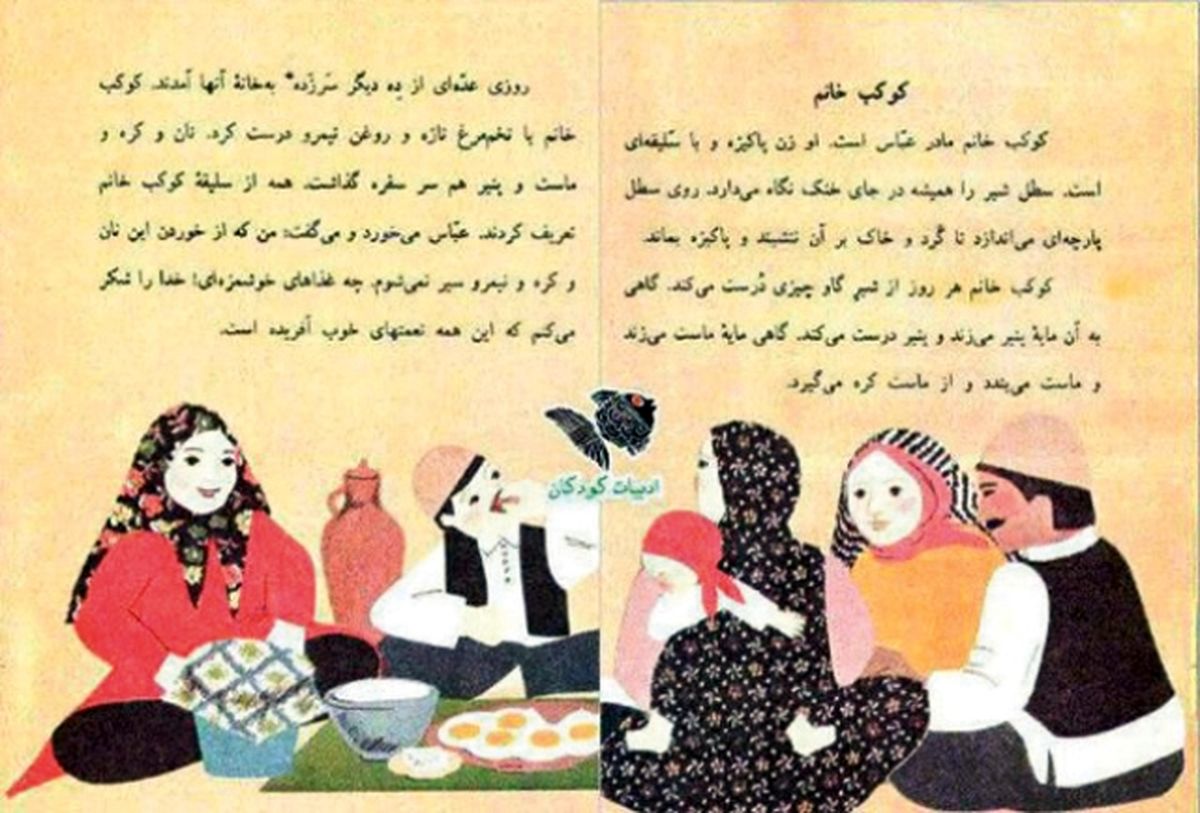 کوکب خانم
کوکب خانم مادر عبّاس است. او زن پاکیزه و با سلیقه‌ای
است. سطل شیر را همیشه در جای خنک نگاه می‌دارد. روی سطل
پارچه‌ای می‌اندازد تا گَرد و خاک بر آن ننشیند و پاکیزه بماند.
کوکب خانم هر روز از شیرِ گاو چیزی دُرست می‌کند. گاهی
به آن مایهٔ پنیر می‌زند و پنیر درست می‌کند. گاهی مایهٔ ماست می‌زند
و ماست می‌بندد و از ماست کره می‌گیرد.
روزی عدّه‌ای از دِه دیگر سَرزَده* به‌خانهٔ آنها آمدند. کوکب
خانم با تخم‌مرغ تازه و روغن نیمرو درست کرد. نان و کره و
ماست و پنیر هم سر سفره گذاشت. همه از سلیقهٔ کوکب خانم
تعریف کردند. عبّاس می‌خورد و می‌گفت: من که از خوردن این نان
و کره و نیمرو سیر نمی‌شوم. چه غذاهای خوشمزه‌ای! خدا را شکر
می‌کنم که این همه نعمتهای خوب آفریده است.
ادبیات کودکان